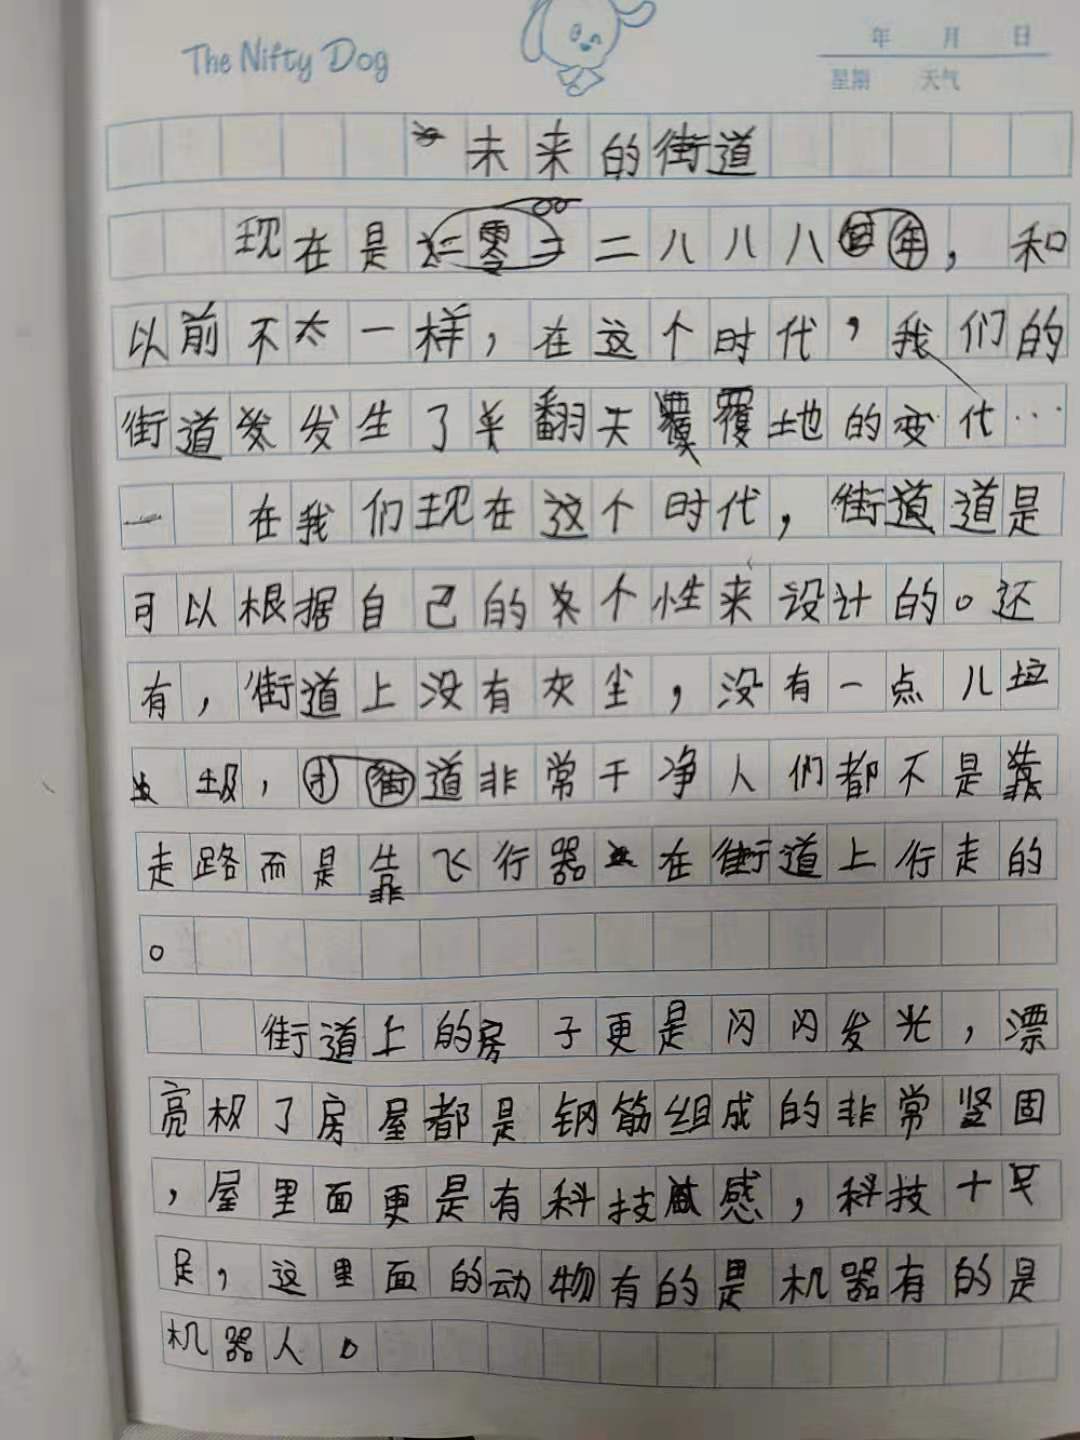 The Nifty Dog
年 月 日
星期 天气
未来的街道
现在是二八八八年，和
以前不太一样，在这个时代，我们的
街道发生了翻天覆地的变代…
在我们现在这个时代，街道道是
可以根据自己的个性来设计的。还
有，街道上没有灰尘，没有一点儿垃
圾，街道非常干净人们都不是靠
走路而是靠飞行器在街道上行走的
。
街道上的房子更是闪闪发光，漂
亮极了房屋都是钢筋组成的非常坚固
，屋里面更是有科技感，科技十足
足，这里面的动物有的是机器有的是
机器人。